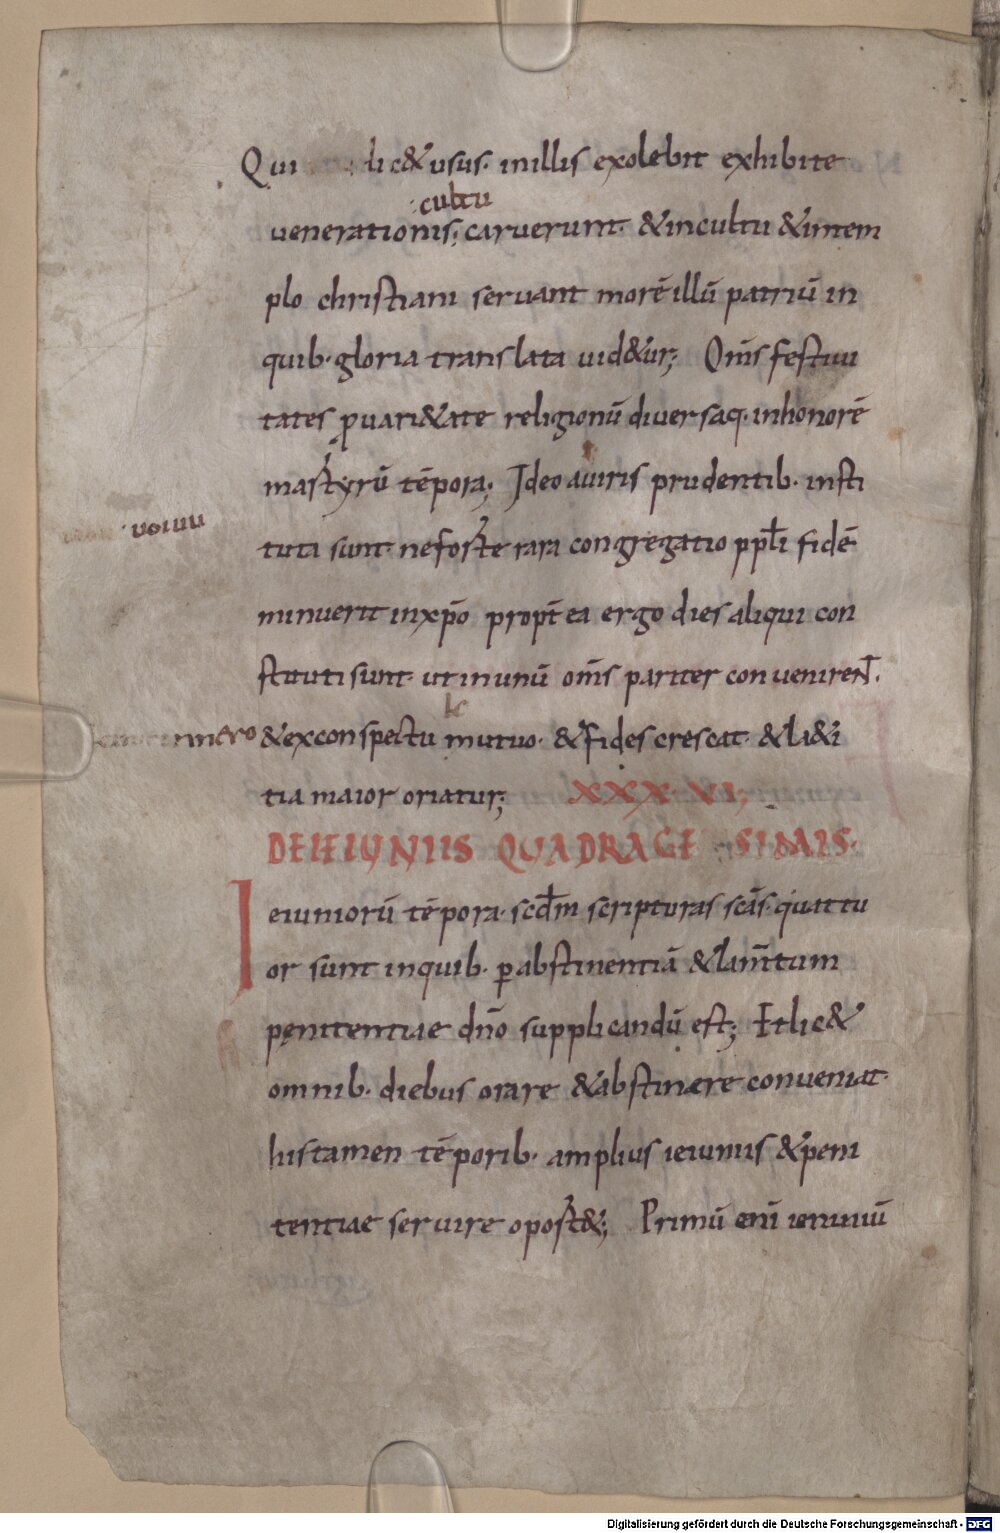 Qui lic& usus· inillis exolebit exhibite
cultu
uenerationis; caruerunt· &incultu &intem
plo christiani seruant morē illū patriū in
quib· gloria translata uid&ur; Om̄s festiui
tates p̱uari&ate religionū diuersaq· inhonorē
martyrū tēpora; Ideo auiris prudentib· insti
tuta sunt· neforte rara congregatio pp̄li fidē
uoiuu
minuerit inxp̄o propt̄ea ergo dies aliqui con
stituti sunt· ut inunū om̄s pariter conuenirent̄·
&exconspectu mutuo· &fides crescat· &la&i
tia maior oriatur; XXX·VI;
DEIEIUNIIS QUADRAGE SIMIS·
Ieiuniorū tēpora· scd̄m scripturas scās· quattu
or sunt inquib· p̱abstinentiā &lam̄tum
pęnitentiae dn̄o supplicandū est; Etlic&
omnib· diebus orare &abstinere conueniat·
histamen tēporib· amplius ieiuniis &peni
tentiae seruire oport&; Primū enī ieiuniū
Digitalisierung gefördert durch die Deutsche Forschungsgemeinschaft - DFG